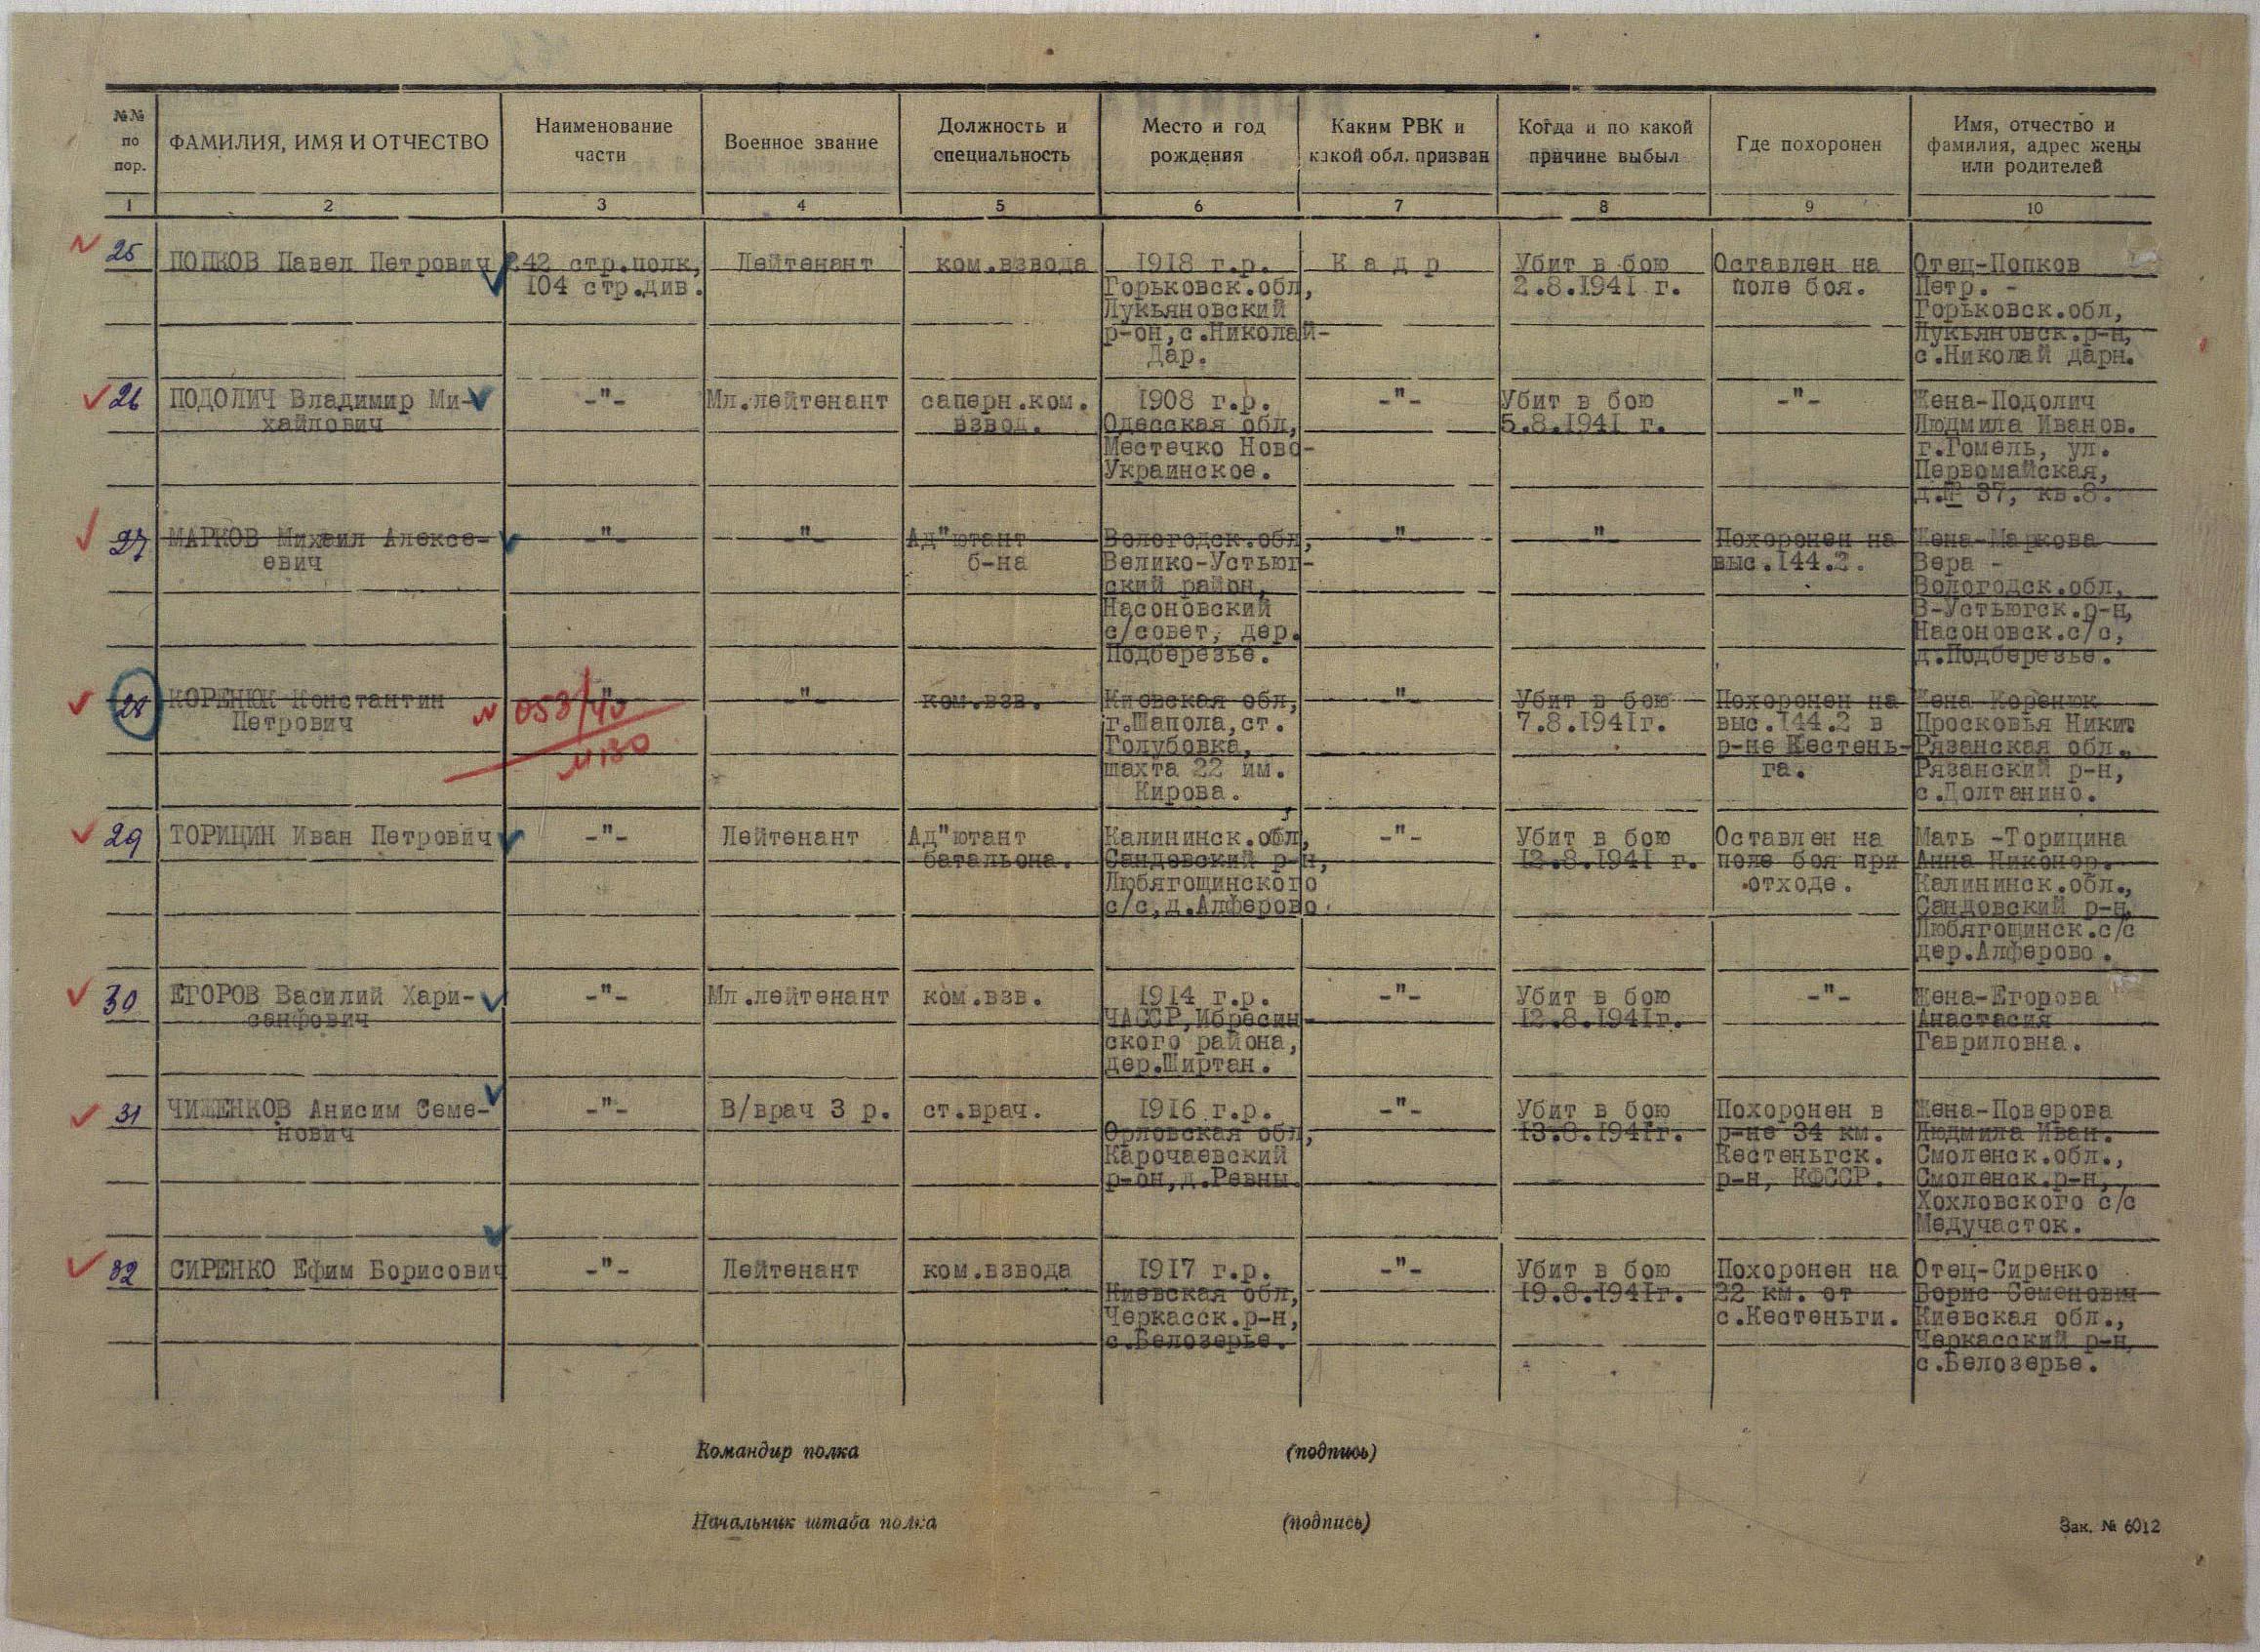 №№ по пор.
ФАМИЛИЯ, ИМЯ И ОТЧЕСТВО
Наименование части
Военное звание
Должность и специальность
Место и год рождения
Каким РВК и какой обл. призван
Когда и по какой причине выбыл
Где похоронен
Имя, отчество и фамилия, адрес жены или родителей
1 2 3 4 5 6 7 8 9 10
25
ПОПКОВ Павел Петрович
242 стр.полк,
104 стр.див.
Лейтенант
ком.взвода
1918 г.р.
Горьковск.обл,
Лукьяновский
р-он,с.Николай-
Дар.
К а д р
Убит в бою
2.8.1941 г.
Оставлен на
поле боя.
Отец-Попков
Петр. -
Горьковск.обл,
Лукьяновск.р-н,
с.Николай дарн.
26
ПОДОЛИЧ Владимир Ми-
хайлович
-"-
Мл.лейтенант
саперн.ком.
взвод.
1908 г.р.
Одесская обл,
Местечко Ново-
Украинское.
-"-
Убит в бою
5.8.1941 г.
-"-
Жена-Подолич
Людмила Иванов.
г.Гомель, ул.
Первомайская,
д.№ 37, кв.8.
27
МАРКОВ Михаил Алексе-
евич
-"-
-"-
Ад"ютант
б-на
Вологодск.обл,
Велико-Устьюг-
ский район,
Насоновский
с/совет, дер.
Подберезье.
-"-
-"-
Похоронен на
выс.144.2.
Жена-Маркова
Вера -
Вологодск.обл,
В-Устьюгск.р-н,
Насоновск.с/с,
д.Подберезье.
28
КОРЕНЮК Константин
Петрович
-"-
058/40
-"-
ком.взв.
Киевская обл,
г.Шапола,ст.
Голубовка,
шахта 22 им.
Кирова.
-"-
Убит в бою
7.8.1941г.
Похоронен на
выс.144.2 в
р-не Кестень-
га.
Жена Коренюк
Просковья Никит.
Рязанская обл.,
Рязанский р-н,
с.Долтанино.
29
ТОРИЦИН Иван Петрович
-"-
Лейтенант
Ад"ютант
батальона.
Калининск.обл,
Сандовский р-н,
Любягощинского
с/с,д.Алферово.
-"-
Убит в бою
12.8.1941 г.
Оставлен на
поле боя при
отходе.
Мать -Торицина
Анна Никонор.
Калининск.обл.,
Сандовский р-н,
Любягощинск.с/с
дер.Алферово.
30
ЕГОРОВ Василий Хари-
санфович
-"-
Мл.лейтенант
ком.взв.
1914 г.р.
ЧАССР,Ибресин-
ского района,
дер.Ширтан.
-"-
Убит в бою
12.8.1941г.
-"-
Жена-Егорова
Анастасия
Гавриловна.
31
ЧИЖЕНКОВ Анисим Семе-
нович
-"-
В/врач 3 р.
ст.врач.
1916 г.р.
Орловская обл,
Карочаевский
р-он,д.Ревны.
-"-
Убит в бою
13.8.1941г.
Похоронен в
р-не 34 км.
Кестеньгск.
р-н, КФССР.
Жена-Поверова
Людмила Иван.
Смоленск.обл.,
Смоленск.р-н,
Хохловского с/с
Медучасток.
32
СИРЕНКО Ефим Борисович
-"-
Лейтенант
ком.взвода
1917 г.р.
Киевская обл,
Черкасск.р-н,
с.Белозерье.
-"-
Убит в бою
19.8.1941г.
Похоронен на
22 км. от
с.Кестеньги.
Отец-Сиренко
Борис Семенович
Киевская обл.,
Черкасский р-н,
с.Белозерье.
Командир полка (подпись)
Начальник штаба полка (подпись)
Зак. № 6012